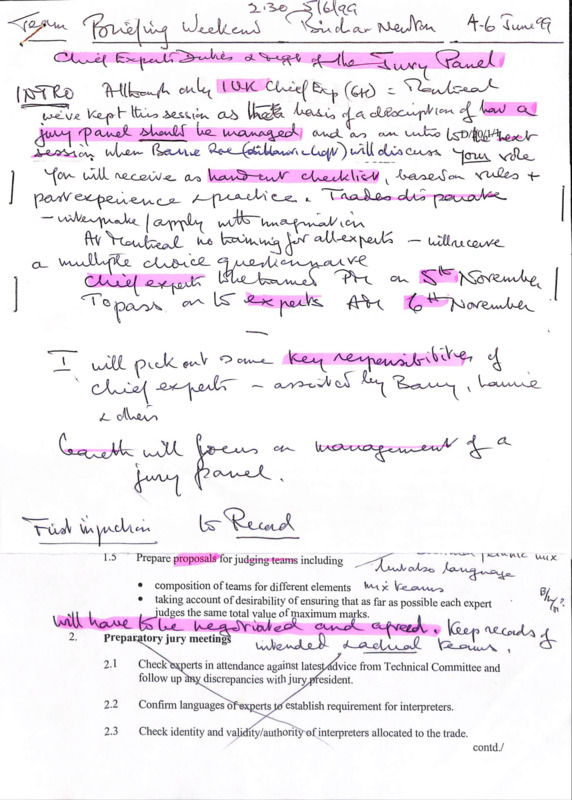 2.30 5/6/99
Team Briefing Weekend Newton 4-6 June 99
Chief Experts Duties & of the Jury Panel
INTRO Although only 1 UK Chief Exp = Montreal
we've kept this session as basis of a description of how a
jury panel should be managed and as an intro to next
session when Barrie Roe will discuss your role
You will receive as handout checklist, based on rules +
past experience & practice. Trades disparate
– /apply with imagination
At Montreal no training for all experts – will receive
a multiple choice questionnaire
Chief experts to be trained PM on 5th November
To pass on to experts AM 6th November
I will pick out some key responsibilities of
chief experts – assisted by Barry,
& others
Gareth will focus on management of a
jury panel.
First injunction to Record
mix
1.5 Prepare proposals for judging teams including but also language
• composition of teams for different elements mix teams
• taking account of desirability of ensuring that as far as possible each expert
judges the same total value of maximum marks.
will have to be negotiated and agreed. Keep records of
2. Preparatory jury meetings intended & actual teams.
2.1 Check experts in attendance against latest advice from Technical Committee and
follow up any discrepancies with jury president.
2.2 Confirm languages of experts to establish requirement for interpreters.
2.3 Check identity and validity/authority of interpreters allocated to the trade.
contd./